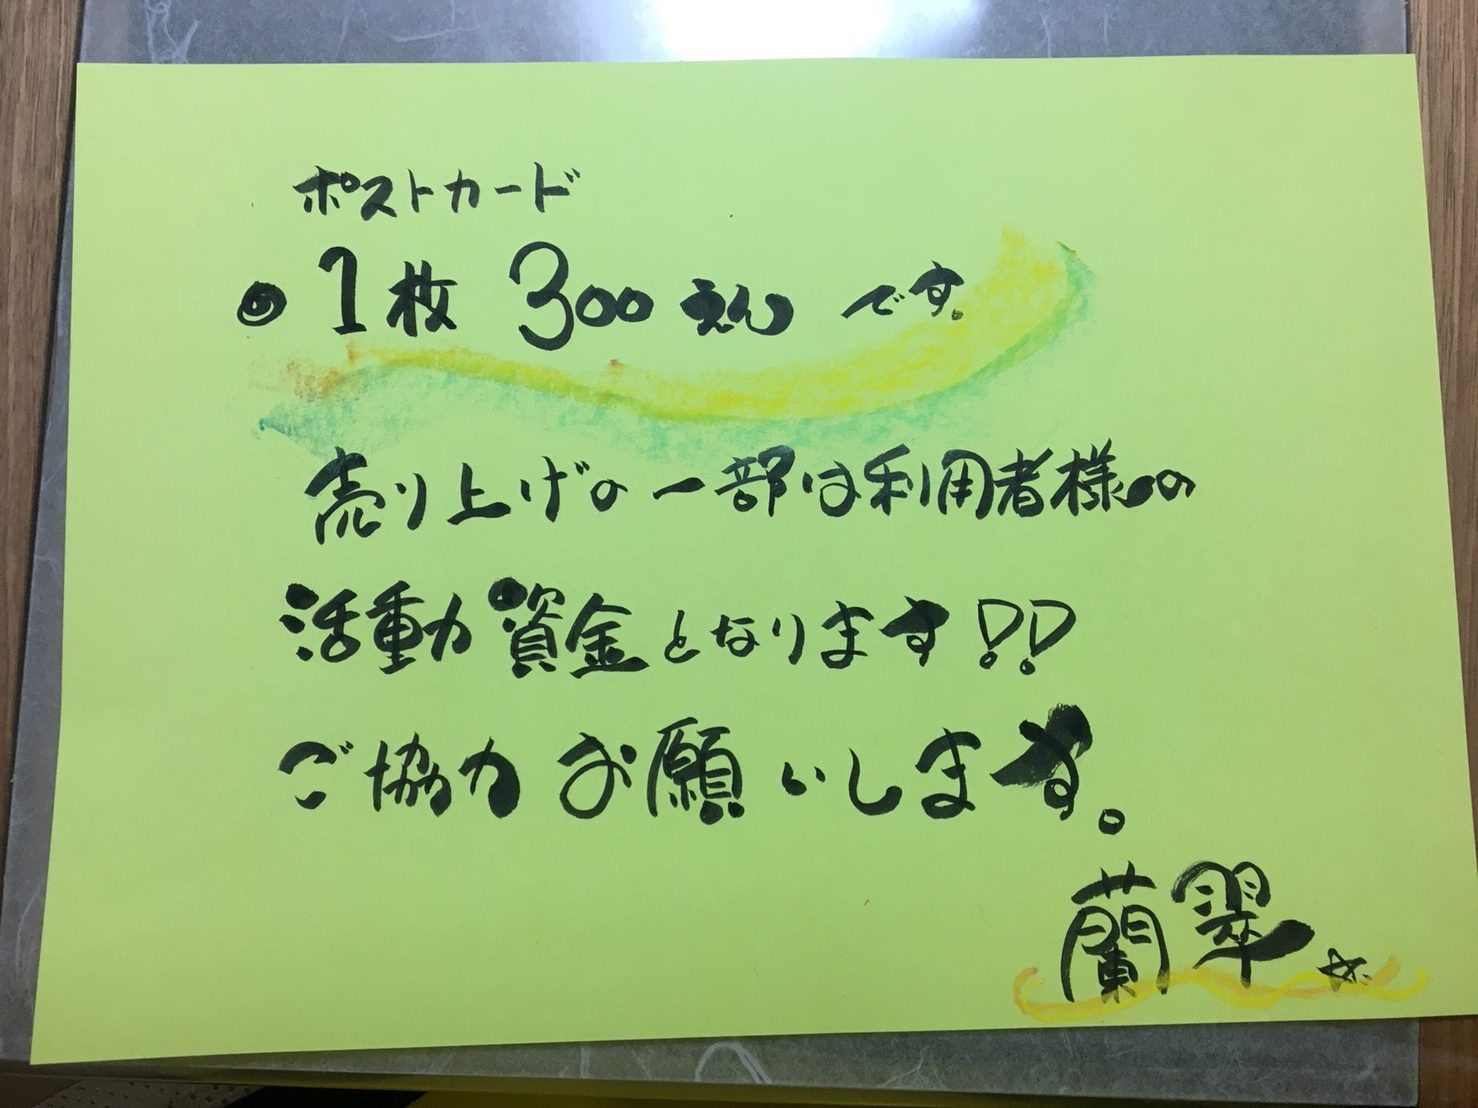 ポストカード
◎1枚 300えんです。
売り上げの一部は利用者様の
活動資金となります!!
ご協力お願いします。
蘭翠☆